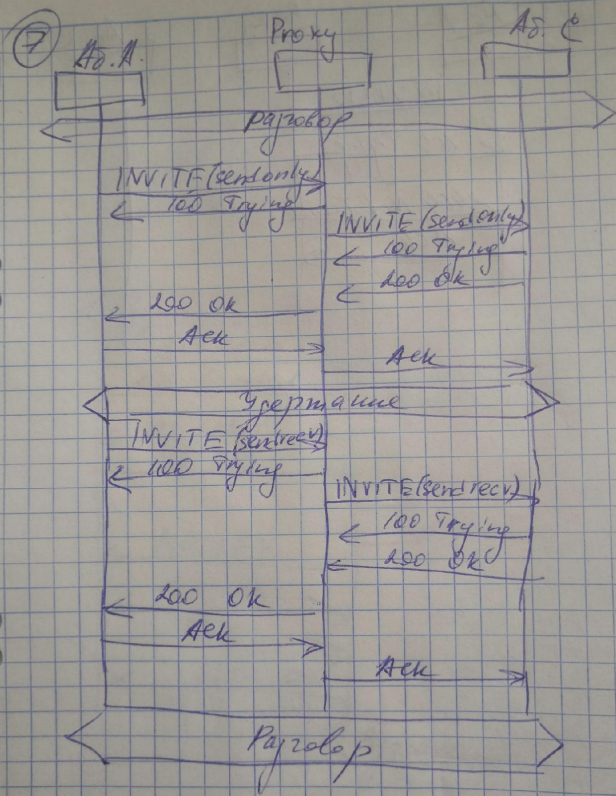 7
Аб. А.
Proxy
Аб. С
разговор
INVITE (sendonly)
100 Trying
INVITE (sendonly)
100 Trying
200 OK
200 OK
Ack
Ack
Удержание
INVITE (sendrecv)
100 Trying
INVITE (sendrecv)
100 Trying
200 OK
200 OK
Ack
Ack
Разговор